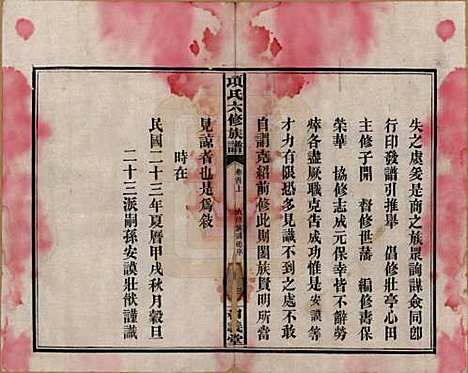 失之虞爰是商之族眾詢謀僉同卽
行印發譜引推舉　倡修壯亭心田
主修子開　督修世藩　編修壽保
榮華　協修志成元保幸皆不辭勞
瘁各盡厥職克告成功惟是安謨等
才力有限恐多見識不到之處不敢
自謂克紹前修此則闔族賢明所當
項氏六修族譜
卷首上
堂
見諒者也是爲敘
時在
民國二十三年夏曆甲戌秋月穀旦
二十三派嗣孫安謨壯猷謹識